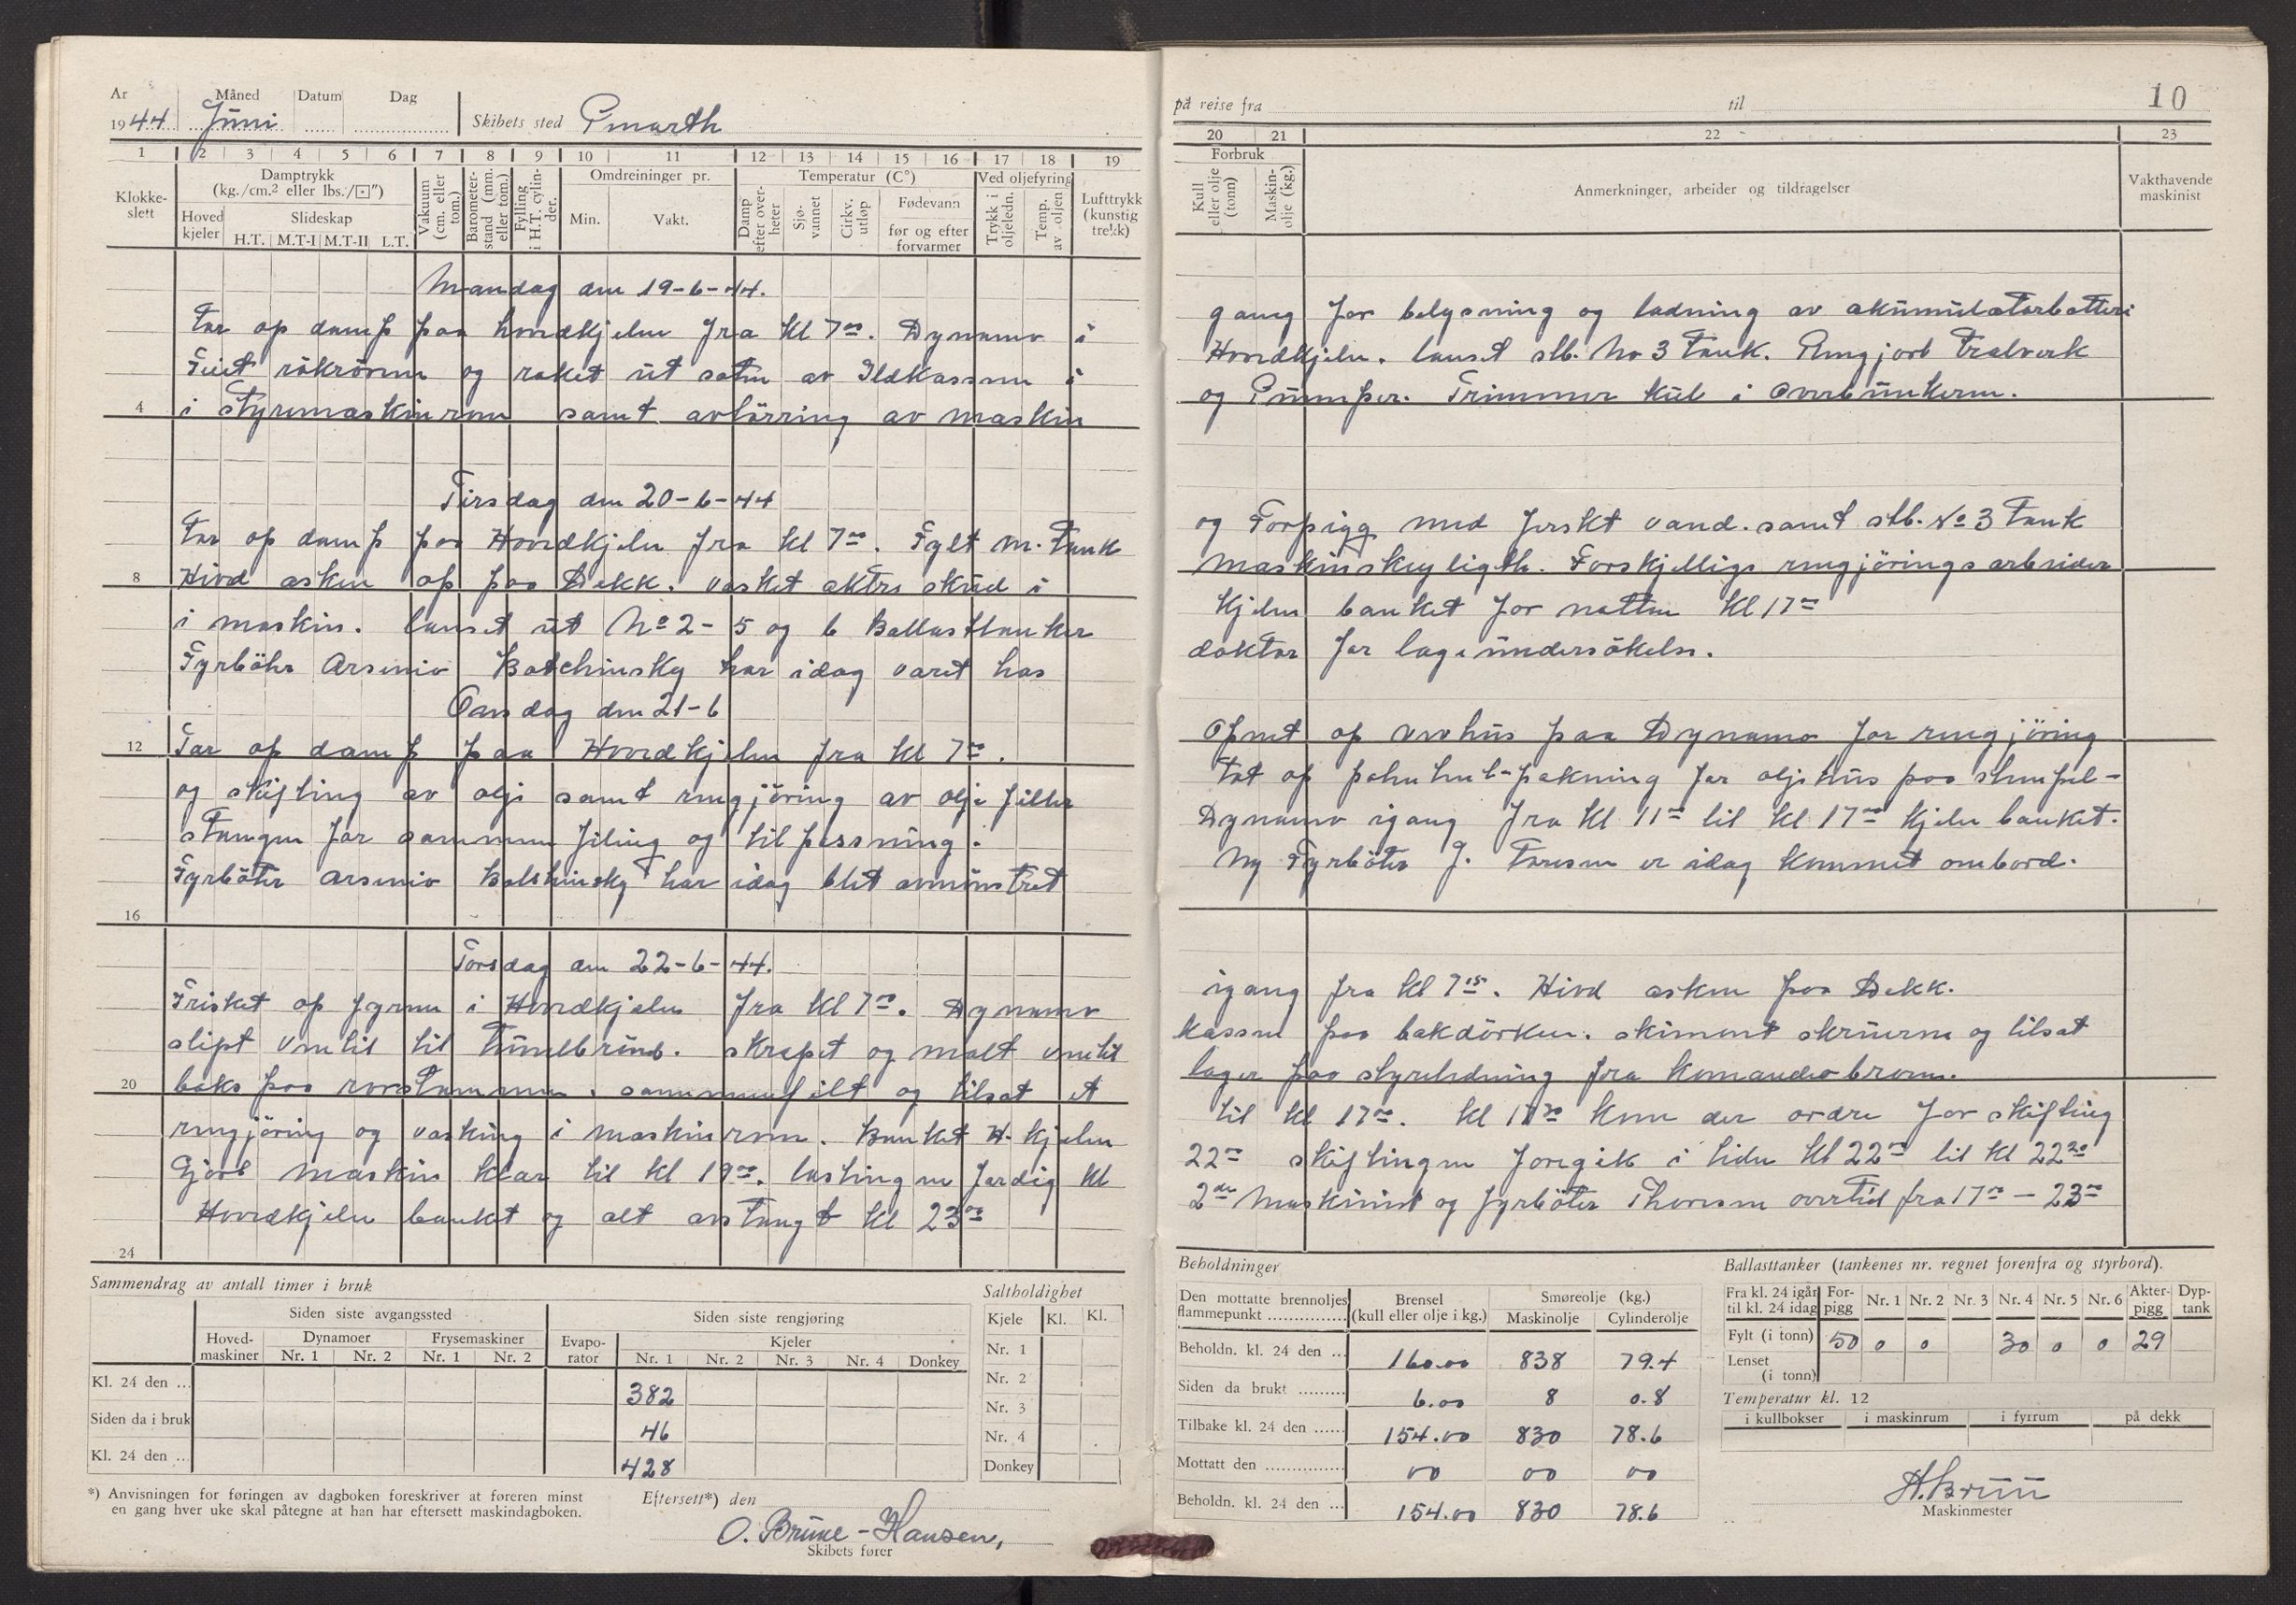 År Måned Datum Dag
1944 Juni Skibets sted Pmarth
på reise fra til 10
1 2 3 4 5 6 7 8 9 10 11 12 13 14 15 16 17 18 19
20 21 22 23
Klokke-slett
Damptrykk (kg./cm.² eller lbs./□")
Hoved kjeler
Slideskap
H.T. M.T-I M.T-II L.T.
Vakuum (cm. eller tom.)
Barometer-stand (mm. eller tom.)
Fylling i H.T. cylin-der.
Omdreininger pr.
Min. Vakt.
Temperatur (C°)
Damp efter over-heter
Sjø-vannet
Cirkv. utløp
Fødevann
før og efter forvarmer
Ved oljefyring
Trykk i oljeledn.
Temp. av oljen
Lufttrykk (kunstig trekk)
Forbruk
Kull eller olje (tonn)
Maskin-olje (kg.)
Anmerkninger, arbeider og tildragelser
Vakthavende maskinist
Mandag den 19-6-44.
Tar op damp paa hovedkjelen fra kl 7°°. Dynamo i
gang for belysning og ladning av akümülatorbatteri
Feiet rökrörene og raket üt soten av Ildkassene i
Hovedkjelen. lenset stb. No 3 Tank. Rengjort Tralverk
4 i styremaskinrom samt avtörring av maskin
og Pümper. Trimmer kül i overbünkerne.
Tirsdag den 20-6-44
Tar op damp paa Hovedkjelen fra kl 7°°. Fylt m. Tank
og Forpigg med ferskt vand. samt stb. No 3 Tank
8 Hivd asken op paa Dekk. vasket aktre sküd i
maskinskeyligth. Forskjellige rengjöringsarbeider
i maskin. lenset üt No 2 - 5 og 6 Ballasttanker
Kjelen banket for natten kl 17°°
Fyrböter Arsenio har idag varet hos
doktor for lægeündersökelse.
Onsdag den 21-6
12 Tar op damp paa Hovedkjelen fra kl 7°°.
Opnet op paa Dynamo for rengjöring
og skifting av olje samt rengjöring av olje filter
Tat op pakning for oljehüs paa stempel-
stangen for sammen filing og tilpassning.
Dynamo igang fra kl 11°° til kl 17°° kjelen banket.
Fyrböter Arsenio har idag blit avmünstret
Ny Fyrböter J. er idag kommet ombord.
16
Torsdag den 22-6-44.
Frisket op fyrene i Hovedkjelen fra kl 7°°. Dynamo
igang fra kl 7¹⁵. Hivd asken paa Dekk.
slipt ventil til Tünelbrönd. skrapet og malt ventil
kassen paa bakdörken. skimmet skrüerne og tilsat
20 boks paa rorstammen. sammenfilt og tilsat et
lager paa styreledning fra komandobroen.
rengjöring og vasking i maskinrom. Banket H. kjelen
til kl 17°°. kl kom der ordre for skifting
Gjort maskin klar til kl 19°°. lastingen færdig kl
22°° skiftingen foregik i tiden kl 22°° til kl 22³⁰
Hovedkjelen banket og alt avstengt kl 23°°
2de Maskinist og fyrböter Thoresen overtid fra 17°° – 23°°
24
Sammendrag av antall timer i bruk
Siden siste avgangssted Siden siste rengjøring
Hoved-maskiner Dynamoer Frysemaskiner Evapo-rator Kjeler
Nr. 1 Nr. 2 Nr. 1 Nr. 2 Nr. 1 Nr. 2 Nr. 3 Nr. 4 Donkey
Kl. 24 den ... 382
Siden da i bruk 46
Kl. 24 den ... 428
Saltholdighet
Kjele Kl. Kl.
Nr. 1
Nr. 2
Nr. 3
Nr. 4
Donkey
*) Anvisningen for føringen av dagboken foreskriver at føreren minst
en gang hver uke skal påtegne at han har eftersett maskindagboken.
Eftersett*) den
O. Brüne-Hansen,
Skibets fører
Beholdninger
Den mottatte brennoljes flammepunkt
Brensel (kull eller olje i kg.)
Smøreolje (kg.)
Maskinolje Cylinderolje
Beholdn. kl. 24 den ... 160.00 838 79.4
Siden da brukt 6.00 8 0.8
Tilbake kl. 24 den 154.00 830 78.6
Mottatt den 00 00 00
Beholdn. kl. 24 den ... 154.00 830 78.6
Ballasttanker (tankenes nr. regnet forenfra og styrbord).
Fra kl. 24 igår til kl. 24 idag For-pigg Nr. 1 Nr. 2 Nr. 3 Nr. 4 Nr. 5 Nr. 6 Akter-pigg Dyp-tank
Fylt (i tonn) 50 0 0 30 0 0 29
Lenset (i tonn)
Temperatur kl. 12
i kullbokser i maskinrum i fyrrum på dekk
A. Brüü
Maskinmester